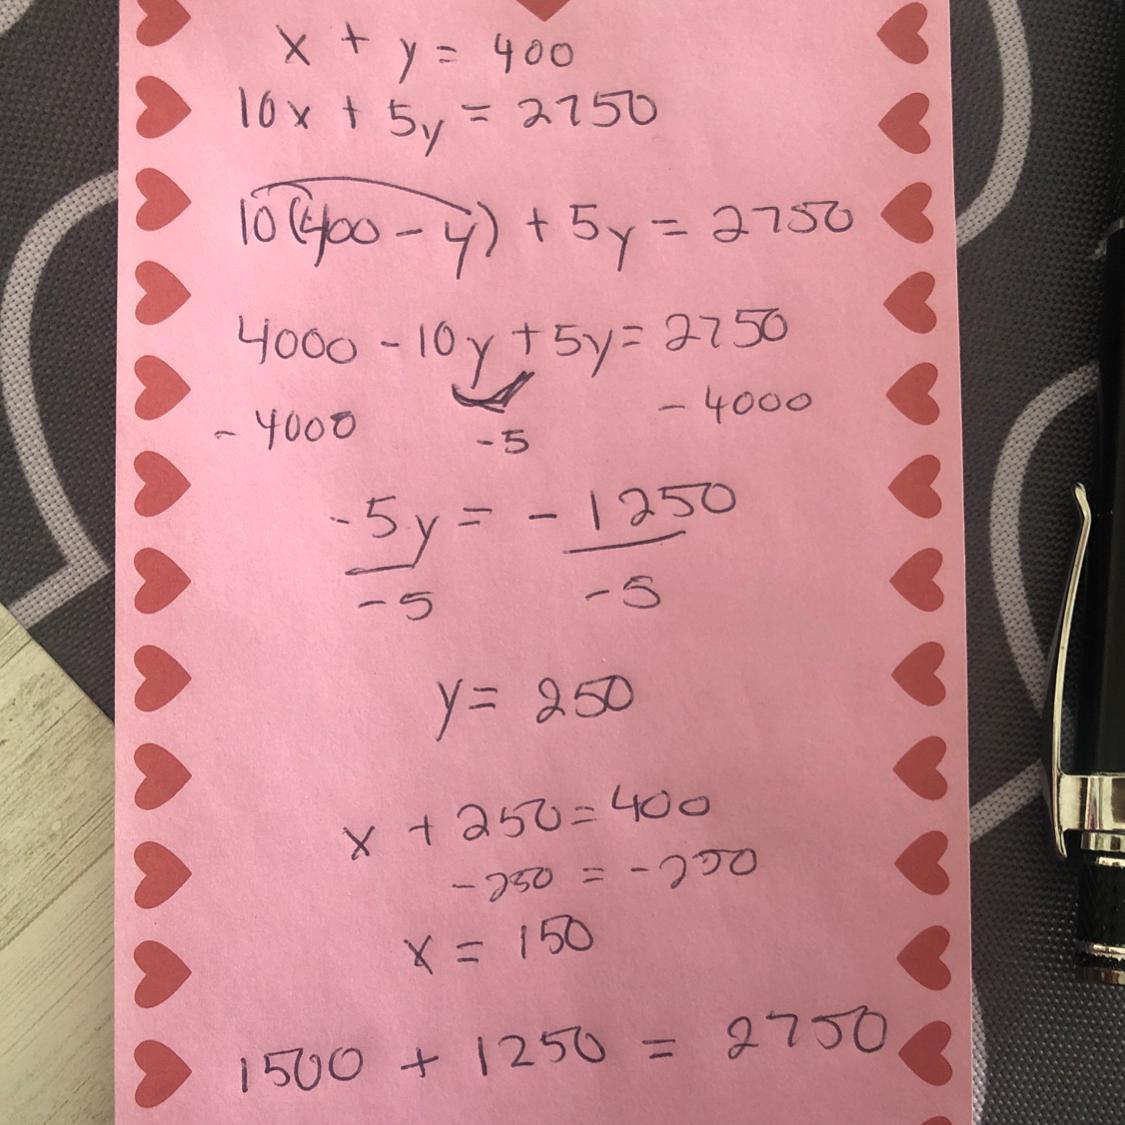 x + y = 400
10x + 5y = 2750
10(400 - y) + 5y = 2750
4000 - 10y + 5y = 2750
- 4000 -5 - 4000
-5y = - 1250
-5 -5
y = 250
x + 250 = 400
- 250 = - 250
x = 150
1500 + 1250 = 2750